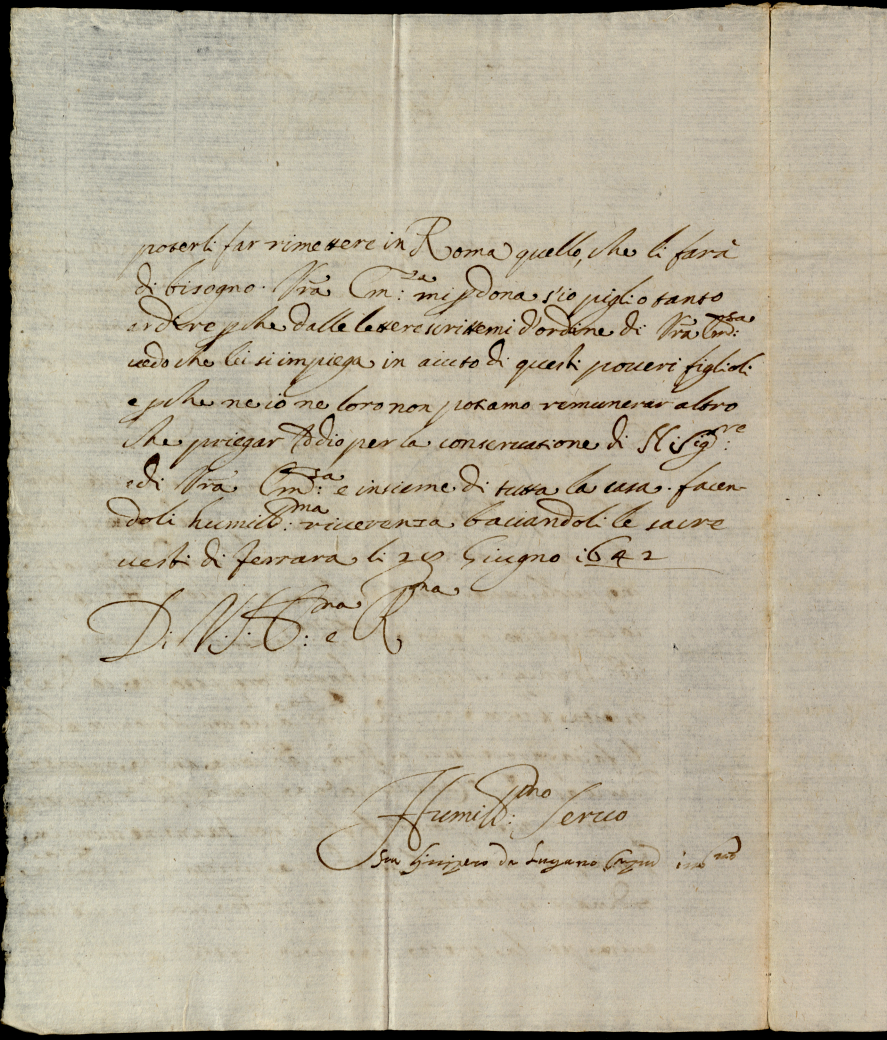 poterli far rimettere in Roma quello, che li farà
di bisogno. Vrã Em:za mi pdona s'io piglio tanto
ardire pche dalle lettere scrittemi d'ordine di Vrã Em:za
vedo che lei si impiega in aiuto di questi poueri figlioli
e pche ne io ne loro non potiamo remunerar altro
che priegar Iddio per la conseruatione di N: Sig:re
e di Vrã Em:za e insieme di tutta la casa. facen-
doli humill:ma riuerenza baciandoli le sacre
uesti di ferrara li 28 Giugno 1642
Di V: S: E:ma e R:ma
Humill:mo Seruo
da Lugano